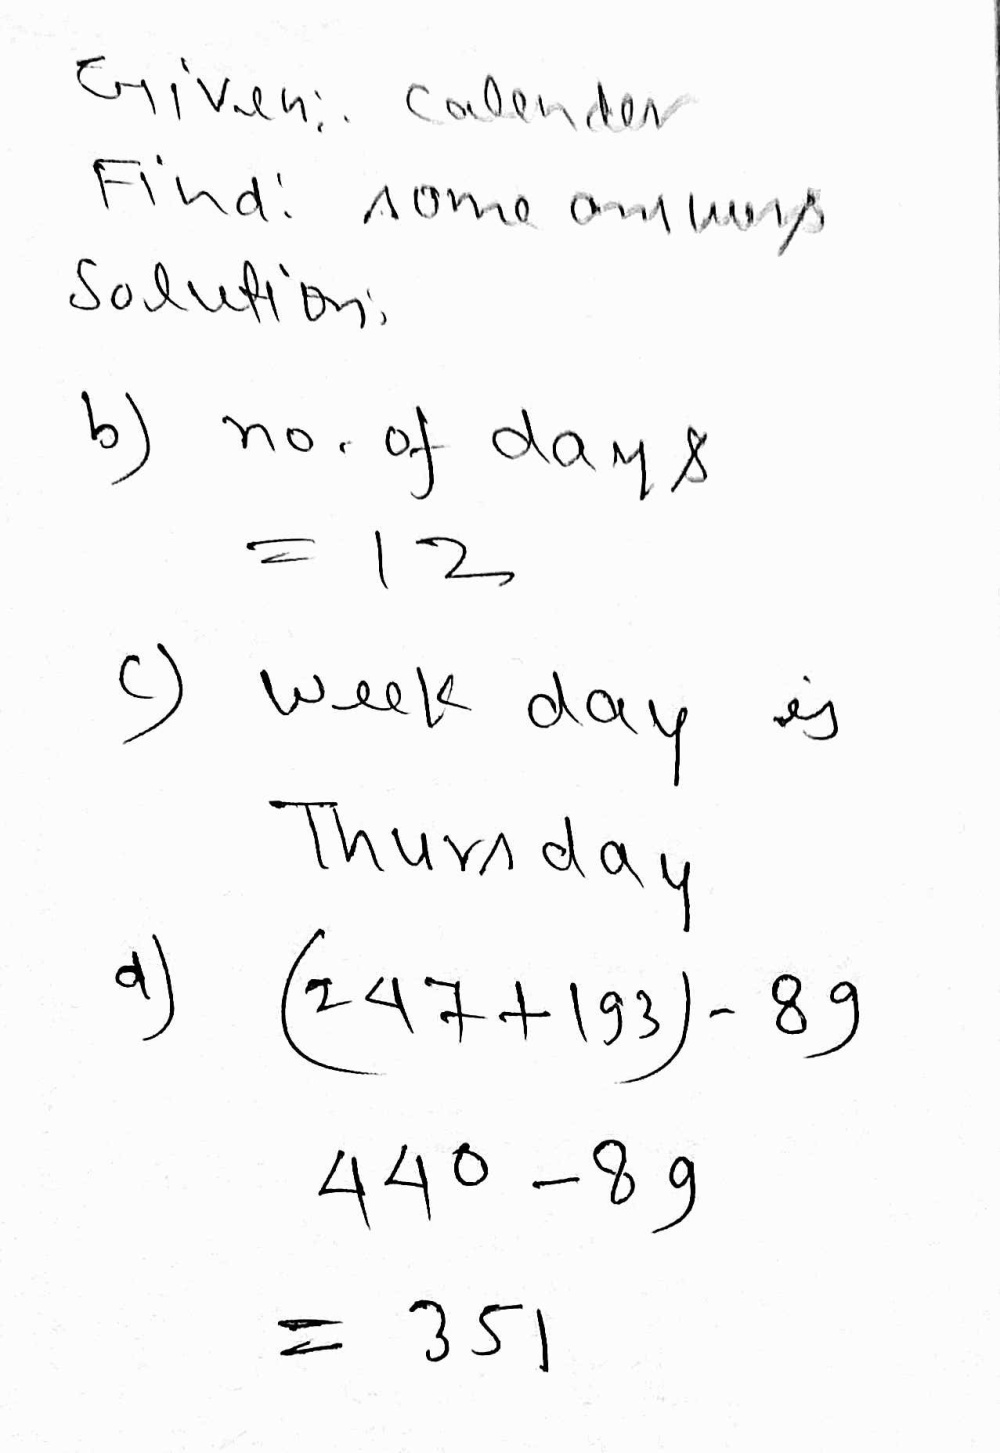 Given:. calender
Find: some answers
Solution:
b) no. of days
= 12
c) week day is
Thursday
a) (247+193)-89
440-89
= 351